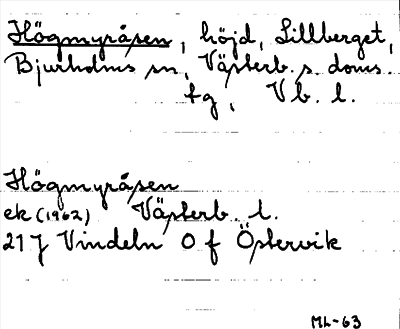 Högmyråsen, höjd, Lillberget,
Bjurholms sn, Västerb. s. doms.
tg, Vb. l.
Högmyråsen
ek (1962) Västerb. l.
21J Vindeln 0 f Östervik
ML-63